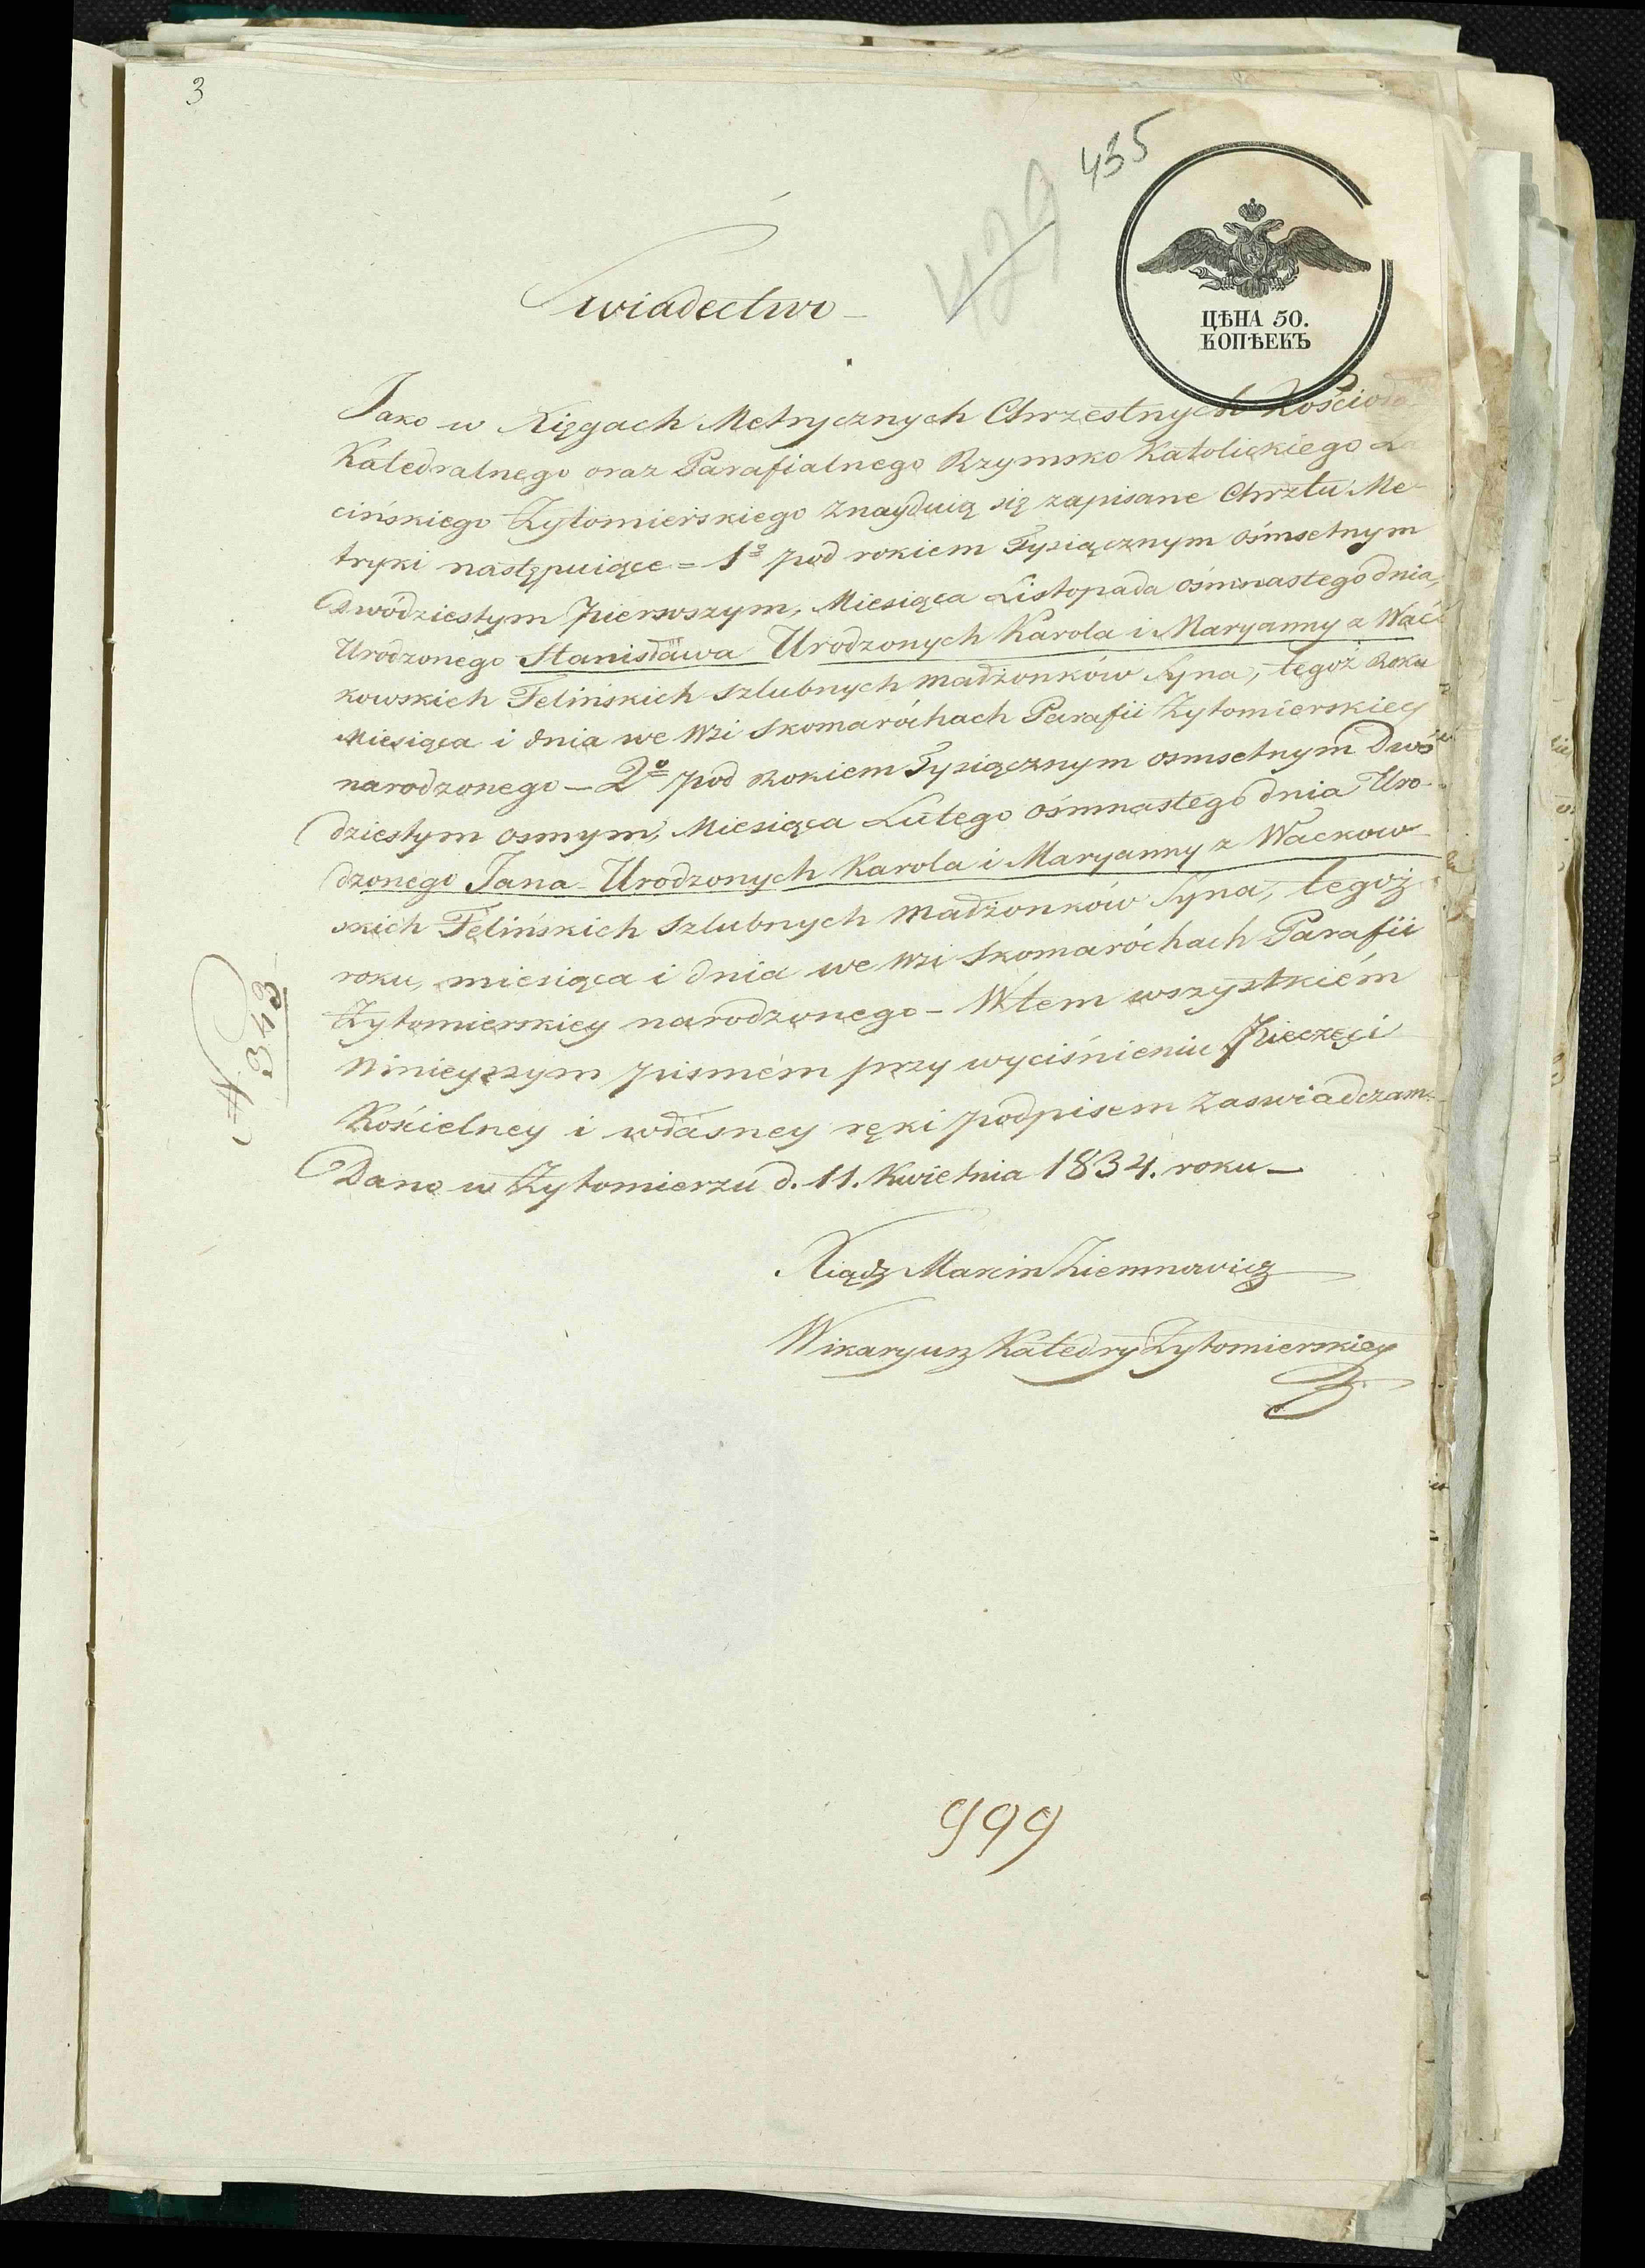 3
435
429
ЦѢНА 50.
КОПѢЕКЪ
Swiadectwo
Jako w Xięgach Metrycznych Chrzestnych Kościoła
Katedralnego oraz Parafialnego Rzymsko Katolickiego Ła
cińskiego Żytomierskiego znayduią się zapisane Chrztu Me-
tryki następuiące = 1º pod rokiem Tysiącznym ośmsetnym
Dwódziestym pierwszym, Miesiąca Listopada ośmnastego dnia,
Urodzonego Stanisława Urodzonych Karola i Maryanny z Wać
kowskich Felińskich szlubnych małżonków Syna, tegoż Roku
Miesiąca i dnia we Wsi Skomaróchach Parafii Żytomierskiey
narodzonego — 2º pod Rokiem Tysiącznym osmsetnym Dwó
dziestym osmym, Miesiąca Lutego ośmnastego dnia Uro-
dzonego Jana Urodzonych Karola i Maryanny z Wackow
skich Felińskich szlubnych małżonków Syna, tegoż
roku, miesiąca i dnia we Wsi Skomaróchach Parafii
Żytomierskiey narodzonego — W tem wszystkiém
Ninieyszym pismém przy wyciśnieniu Pieczęci
Kościelney i własney ręki podpisem zaswiadczam
Dano w Żytomierzu d. 11. Kwietnia 1834. roku —
Xiądz Marcin Ziemnowicz
Wikaryusz Katedry Żytomierskiey
999